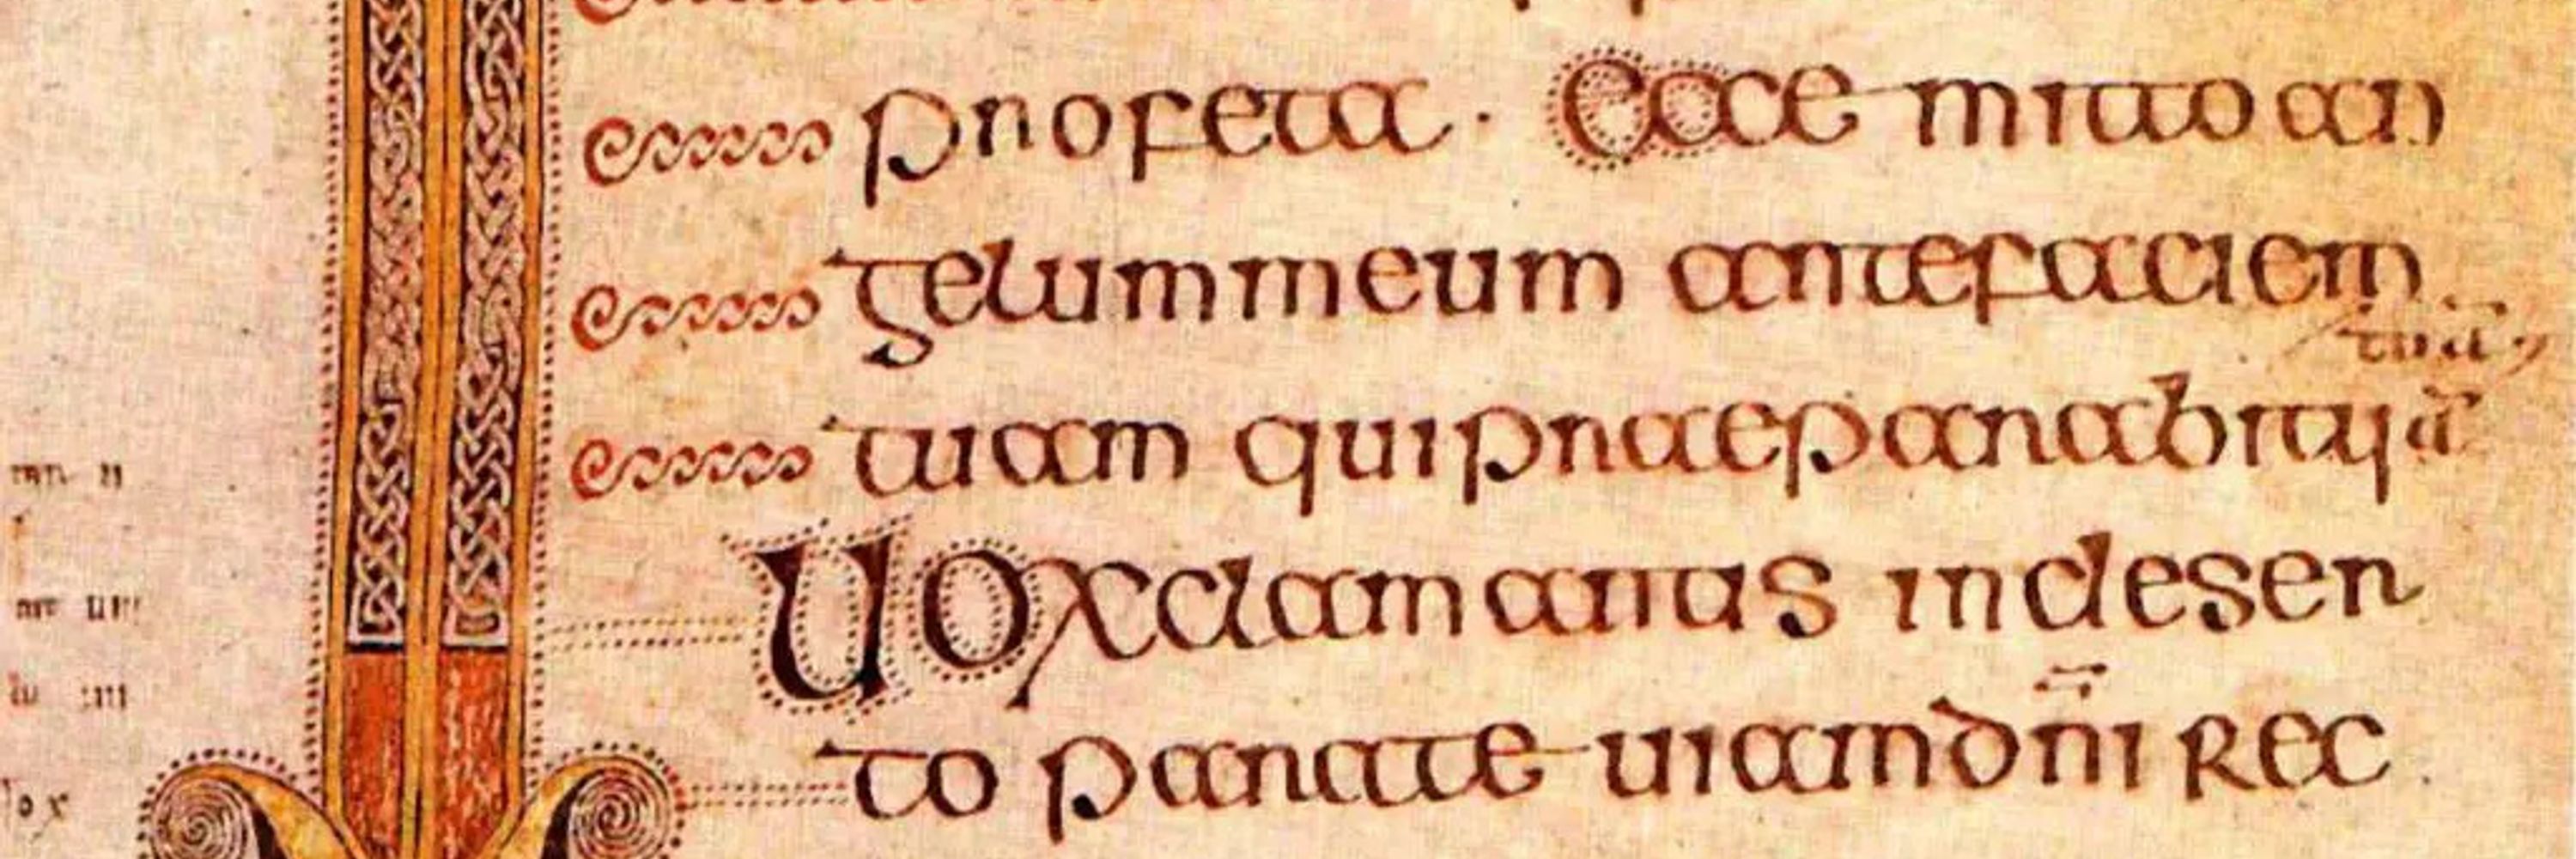 profeta · Ecce mitto an
gelum meum ante faciem
tuā
tuam qui praeparabit uiā
Uox clamantis in deser
to parate uiam dn̄i rec